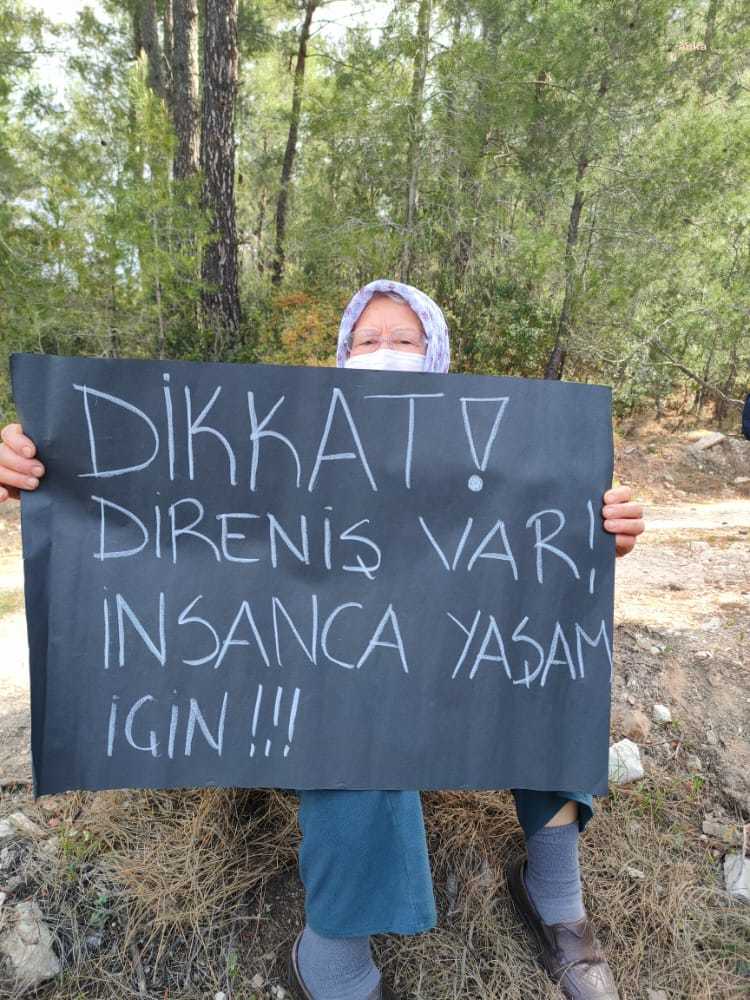 anka
DİKKAT!
DİRENİŞ VAR!
İNSANCA YAŞAM
İÇİN!!!